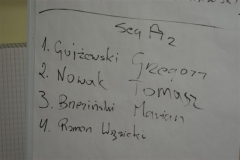 Seg A2
1. Gujżewski Grzegorz
2. Nowak Tomasz
3. Brzeziński Marian
4. Roman